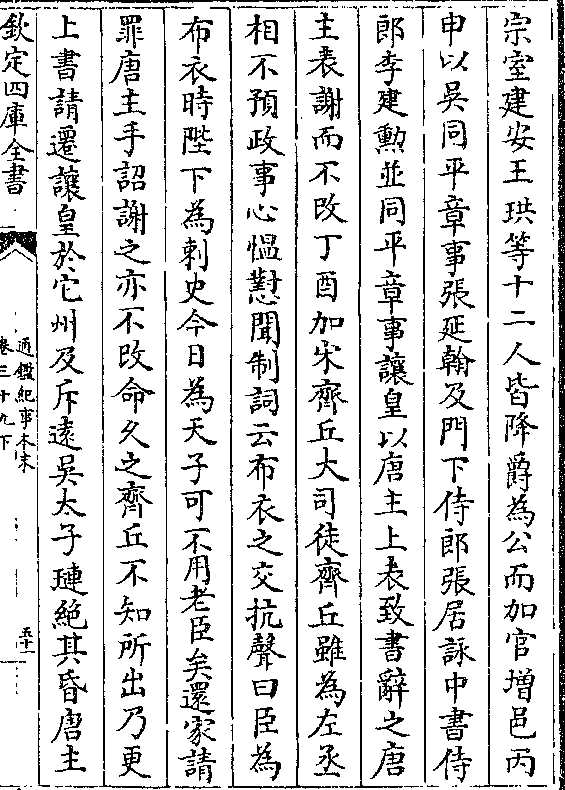 宗室建安王珙等十二人皆降爵為公而加官增邑丙
申以吳同平章事張延翰及門下侍郎張居詠中書侍
郎李建勲並同平章事讓皇以唐主上表致書辭之唐
主表謝而不改丁酉加宋齊丘大司徒齊丘雖為左丞
相不預政事心愠懟聞制詞云布衣之交抗聲曰臣為
布衣時陛下為刺史今日為天子可不用老臣矣還家請
罪唐主手詔謝之亦不改命乆之齊丘不知所出乃更
上書請遷讓皇於它州及斥逺吳太子璉絶其昏唐主
欽定四庫全書
通鑑紀事本末
卷三十九下
五十二